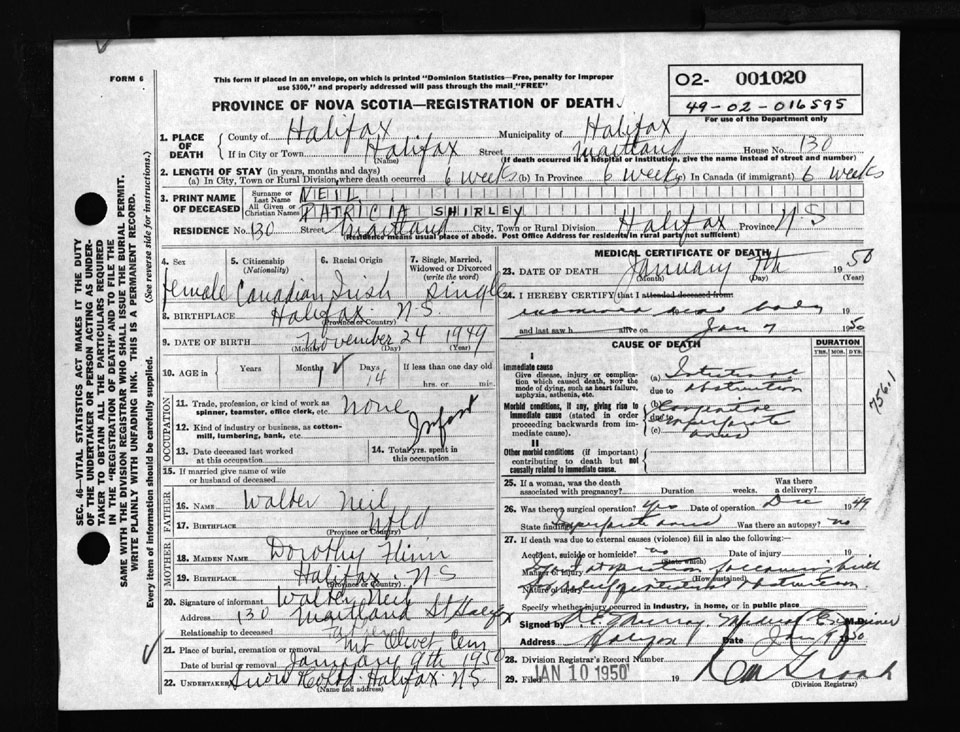 FORM 6
This form if placed in an envelope, on which is printed "Dominion Statistics—Free, penalty for improper
use $300," and properly addressed will pass through the mail "FREE"
PROVINCE OF NOVA SCOTIA—REGISTRATION OF DEATH
02- 001020
49-02-016595
For use of the Department only
1. PLACE OF DEATH County of Halifax Municipality of Halifax
If in City or Town Halifax Street Maitland House No. 130
(Name) (If death occurred in a hospital or institution, give the name instead of street and number)
2. LENGTH OF STAY (in years, months and days)
(a) In City, Town or Rural Division where death occurred 6 weeks (b) In Province 6 weeks (c) In Canada (if immigrant) 6 weeks
3. PRINT NAME OF DECEASED Surname or Last Name NEIL
All Given or Christian Names PATRICIA SHIRLEY
RESIDENCE No. 130 Street Maitland City, Town or Rural Division Halifax Province N S
(Residence means usual place of abode. Post Office Address for residents in rural parts not sufficient)
4. Sex female
5. Citizenship (Nationality) Canadian
6. Racial Origin Irish
7. Single, Married, Widowed or Divorced (write the word) single
8. BIRTHPLACE Halifax N.S.
(Province or Country)
9. DATE OF BIRTH November 24 1949
(Month) (Day) (Year)
10. AGE in Years Months 1 Days 14 If less than one day old
hrs. or min.
OCCUPATION
11. Trade, profession, or kind of work as spinner, teamster, office clerk, etc. None
12. Kind of industry or business, as cotton-mill, lumbering, bank, etc. Infant
13. Date deceased last worked at this occupation
14. Total yrs. spent in this occupation
15. If married give name of wife or husband of deceased
FATHER
16. NAME Walter Neil
17. BIRTHPLACE Nfld
(Province or Country)
MOTHER
18. MAIDEN NAME Dorothy Flinn
19. BIRTHPLACE Halifax N S
(Province or Country)
20. Signature of informant Walter Neil
Address 130 Maitland St Halifax
Relationship to deceased father
21. Place of burial, cremation or removal Mt Olivet Cem
Date of burial or removal January 9th 1950
22. UNDERTAKER Snow & Co Ltd Halifax N S
(Name and address)
MEDICAL CERTIFICATE OF DEATH
23. DATE OF DEATH January 7th 1950
(Month) (Day) (Year)
24. I HEREBY CERTIFY that I attended deceased from
examined dead body 19
and last saw h alive on Jan 7 1950
CAUSE OF DEATH
DURATION
YRS. MOS. DYS.
I
Immediate cause
Give disease, injury or complication which caused death, NOT the mode of dying, such as heart failure, asphyxia, asthenia, etc.
(a) Intestinal
due to obstruction
Morbid conditions, if any, giving rise to immediate cause (stated in order proceeding backwards from immediate cause).
(b) Congenital
due to imperforate
(c) anus
756.1
II
Other morbid conditions (if important) contributing to death but not causally related to immediate cause.
25. If a woman, was the death associated with pregnancy? Duration weeks. Was there a delivery?
26. Was there a surgical operation? Yes Date of operation Dec 1949
State findings Imperforate anus Was there an autopsy? no
27. If death was due to external causes (violence) fill in also the following:
Accident, suicide or homicide? no Date of injury 19
(State which)
Manner of injury following birth
(How sustained)
Nature of injury obstruction
Specify whether injury occurred in industry, in home, or in public place
Signed by Murray Medical Examiner M.D.
Address Halifax Date Jan 9 1950
28. Division Registrar's Record Number
29. Filed JAN 10 1950 19
(Division Registrar)
SEC. 46—VITAL STATISTICS ACT MAKES IT THE DUTY
OF THE UNDERTAKER OR PERSON ACTING AS UNDERTAKER TO OBTAIN ALL THE PARTICULARS REQUIRED
IN THE "REGISTRATION OF DEATH" AND TO FILE THE
SAME WITH THE DIVISION REGISTRAR WHO SHALL ISSUE THE BURIAL PERMIT.
WRITE PLAINLY WITH UNFADING INK. THIS IS A PERMANENT RECORD.
Every item of information should be carefully supplied. (See reverse side for instructions.)